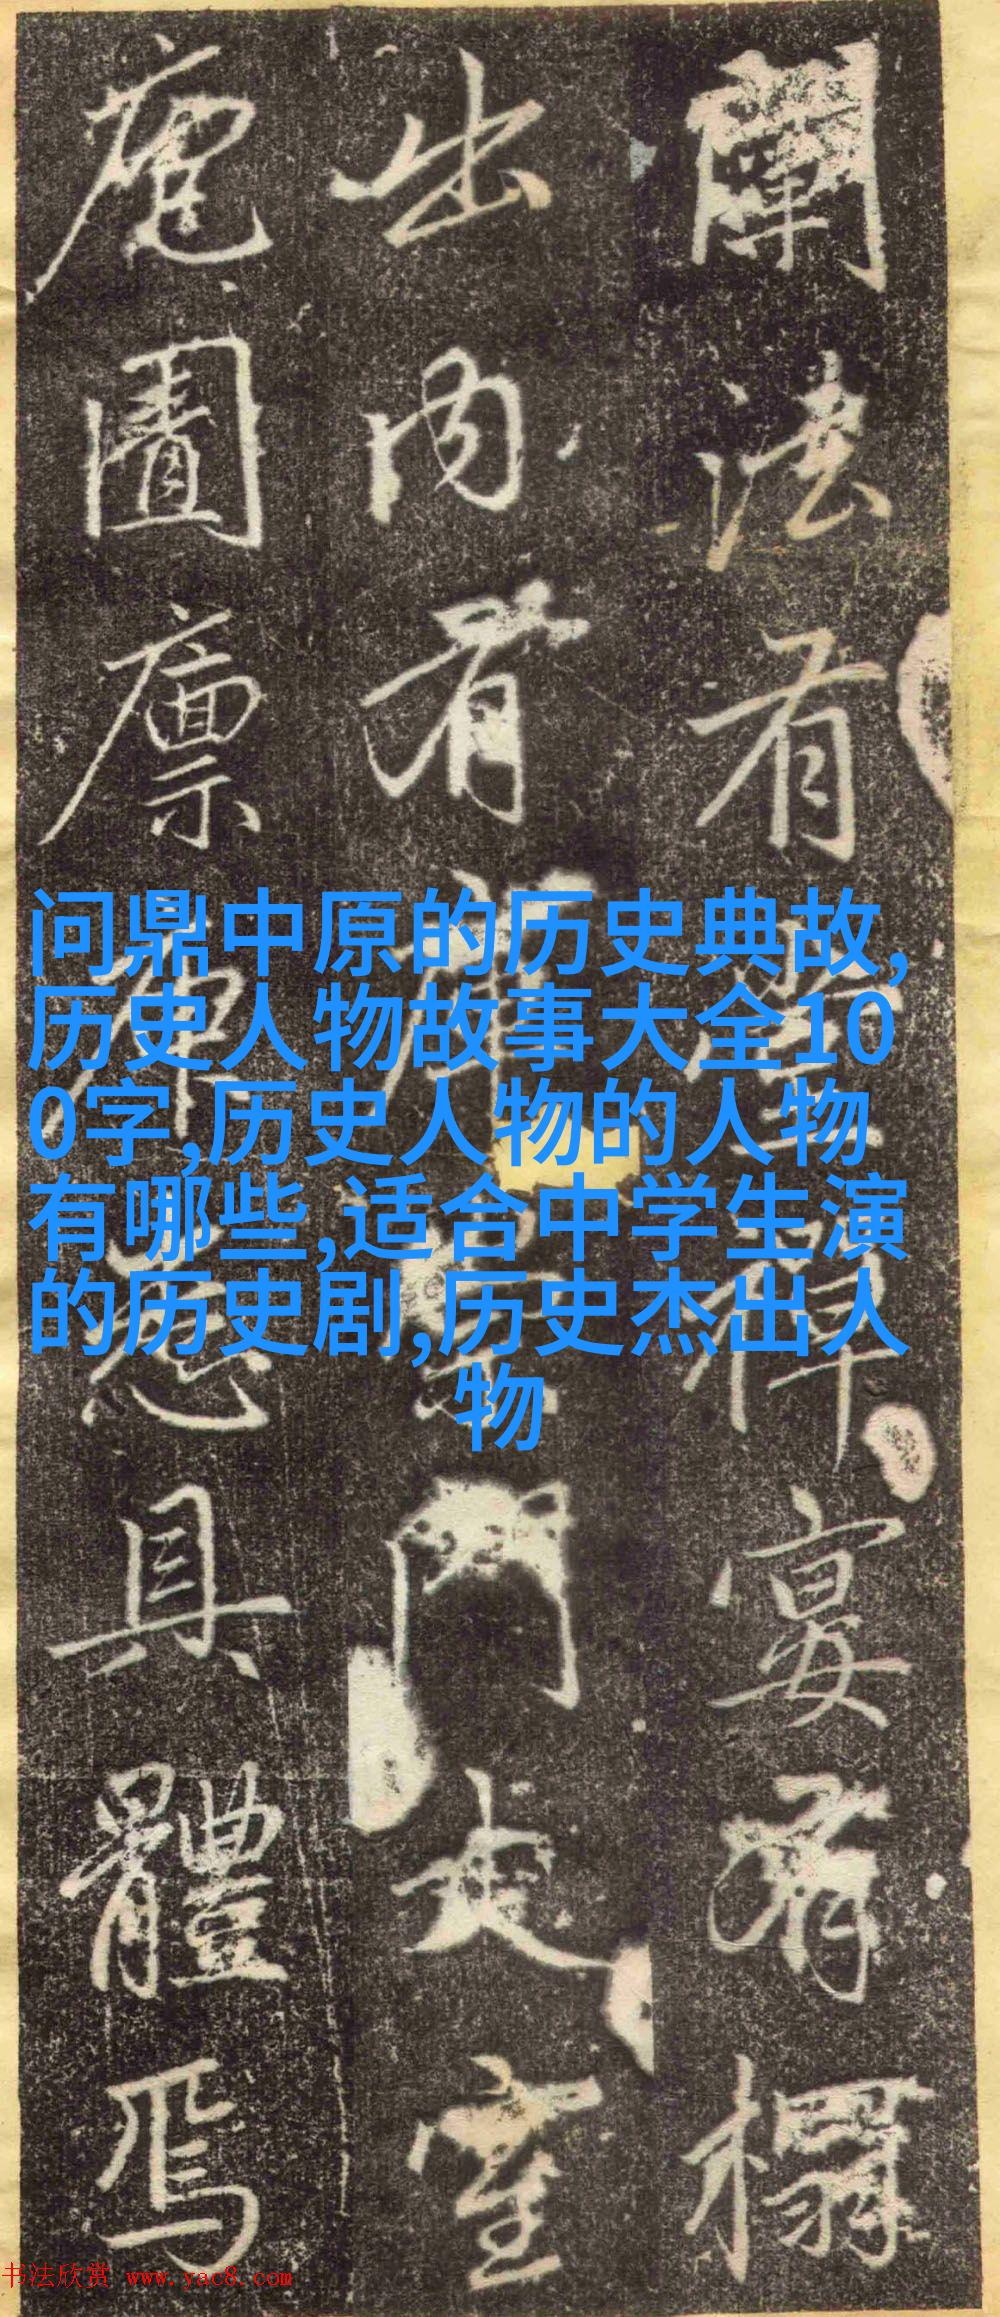 闡法有禪宴有榻
出内有門室
庖圊廩庫悉具體焉
问鼎中原的历史典故,
历史人物故事大全10
0字,历史人物的人物
有哪些,适合中学生演
的历史剧,历史杰出人
物
书法欣赏 www.yac8.com